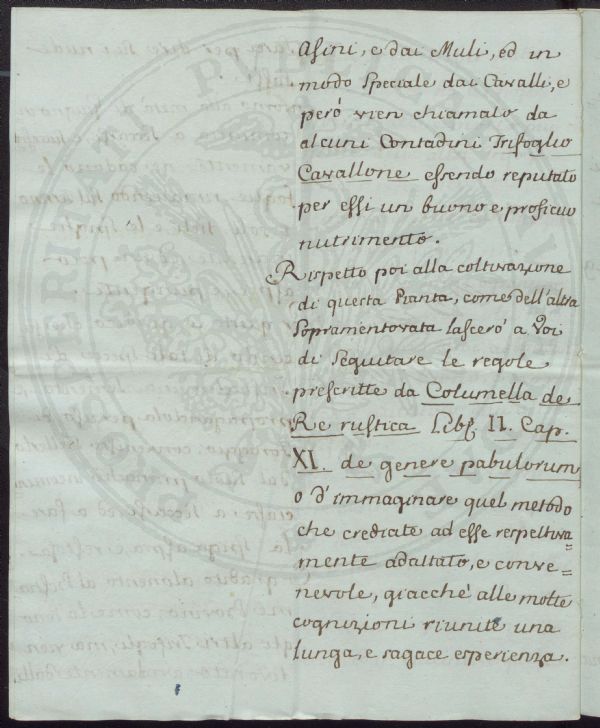 Asini, e dai Muli, ed in
modo speciale dai Cavalli, e
peró vien chiamato da
alcuni Contadini Trifoglio
Cavallone essendo reputato
per essi un buono e proficuo
nutrimento.
Rispetto poi alla coltivazione
di questa Pianta, come dell'altra
sopramentovata lasceró a Voi
di seguitare le regole
prescritte da Columella de
Re rustica Lib. II. Cap.
XI. de genere pabulorum
o d'immaginare quel metodo
che crediate ad esse respettiva=
mente adattato, e conve=
nevole, giacchè alle molte
cognizioni riunite una
lunga, e sagace esperienza.